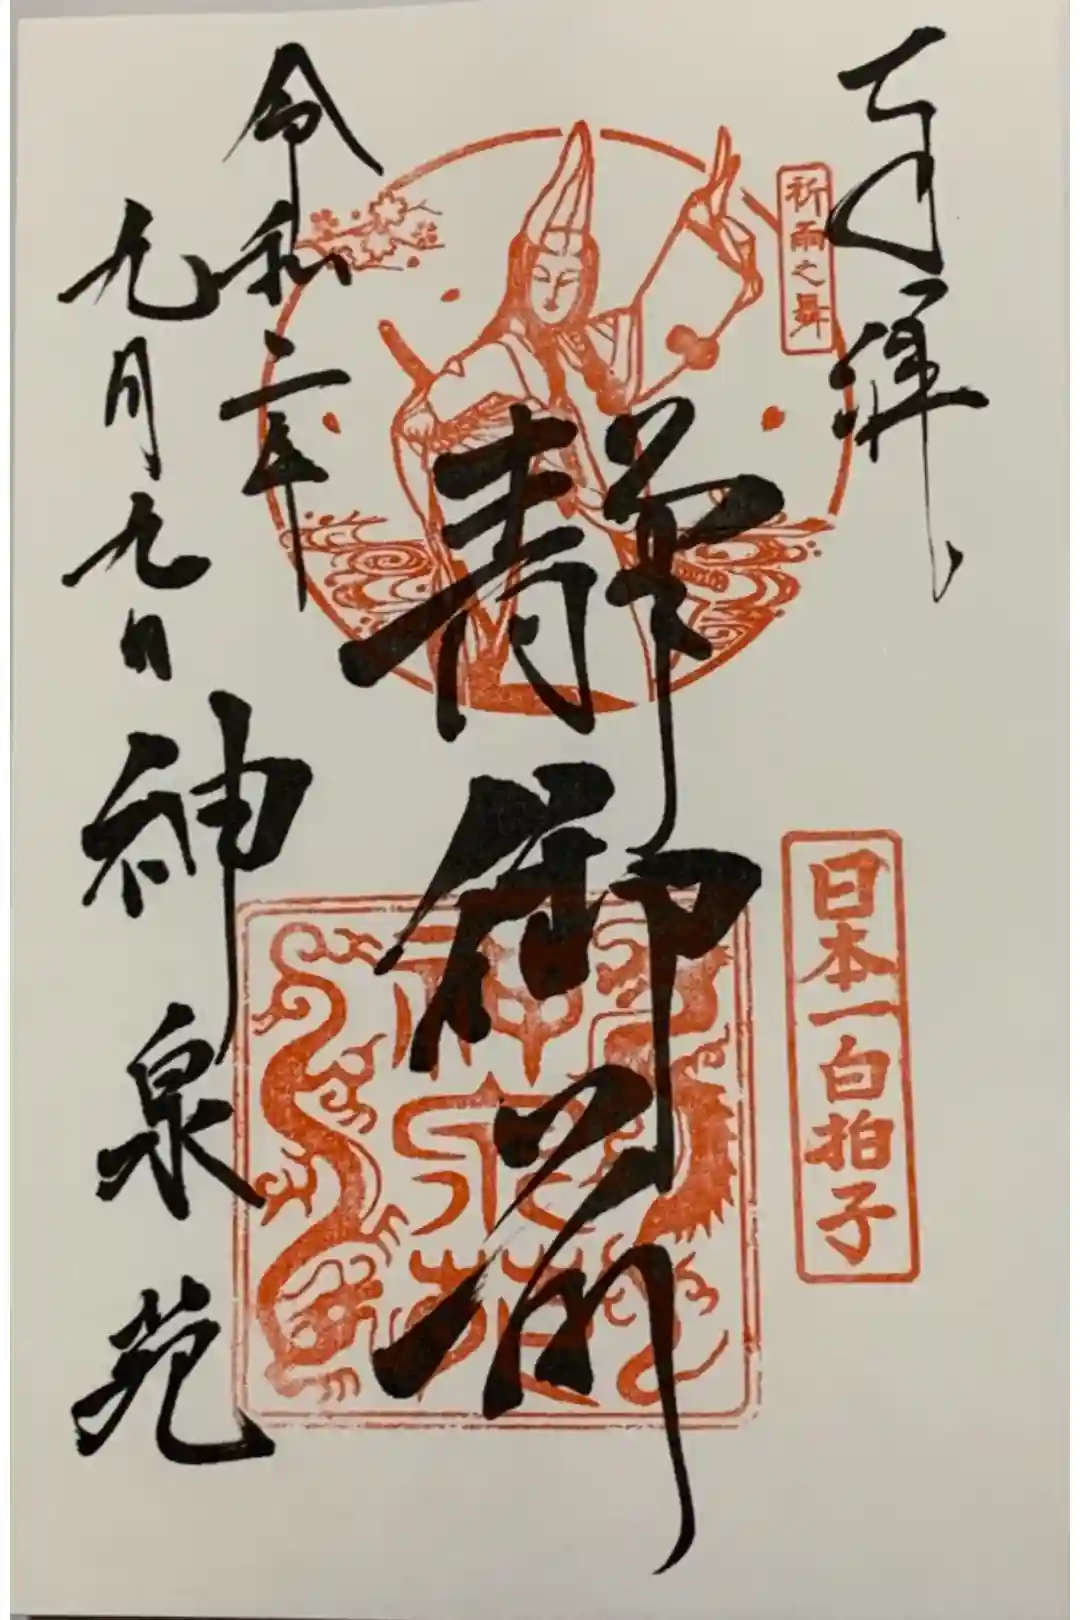 奉拝
祈雨之舞
日本一白拍子
静御前
神泉苑
令和二年
九月九日
神泉苑